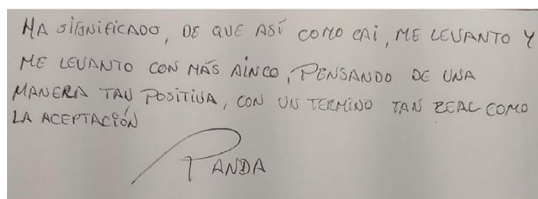 HA SIGNIFICADO, DE QUE ASÍ COMO CAI, ME LEVANTO Y
ME LEVANTO CON MÁS AINCO, PENSANDO DE UNA
MANERA TAN POSITIVA, CON UN TERMINO TAN REAL COMO
LA ACEPTACIÓN
PANDA